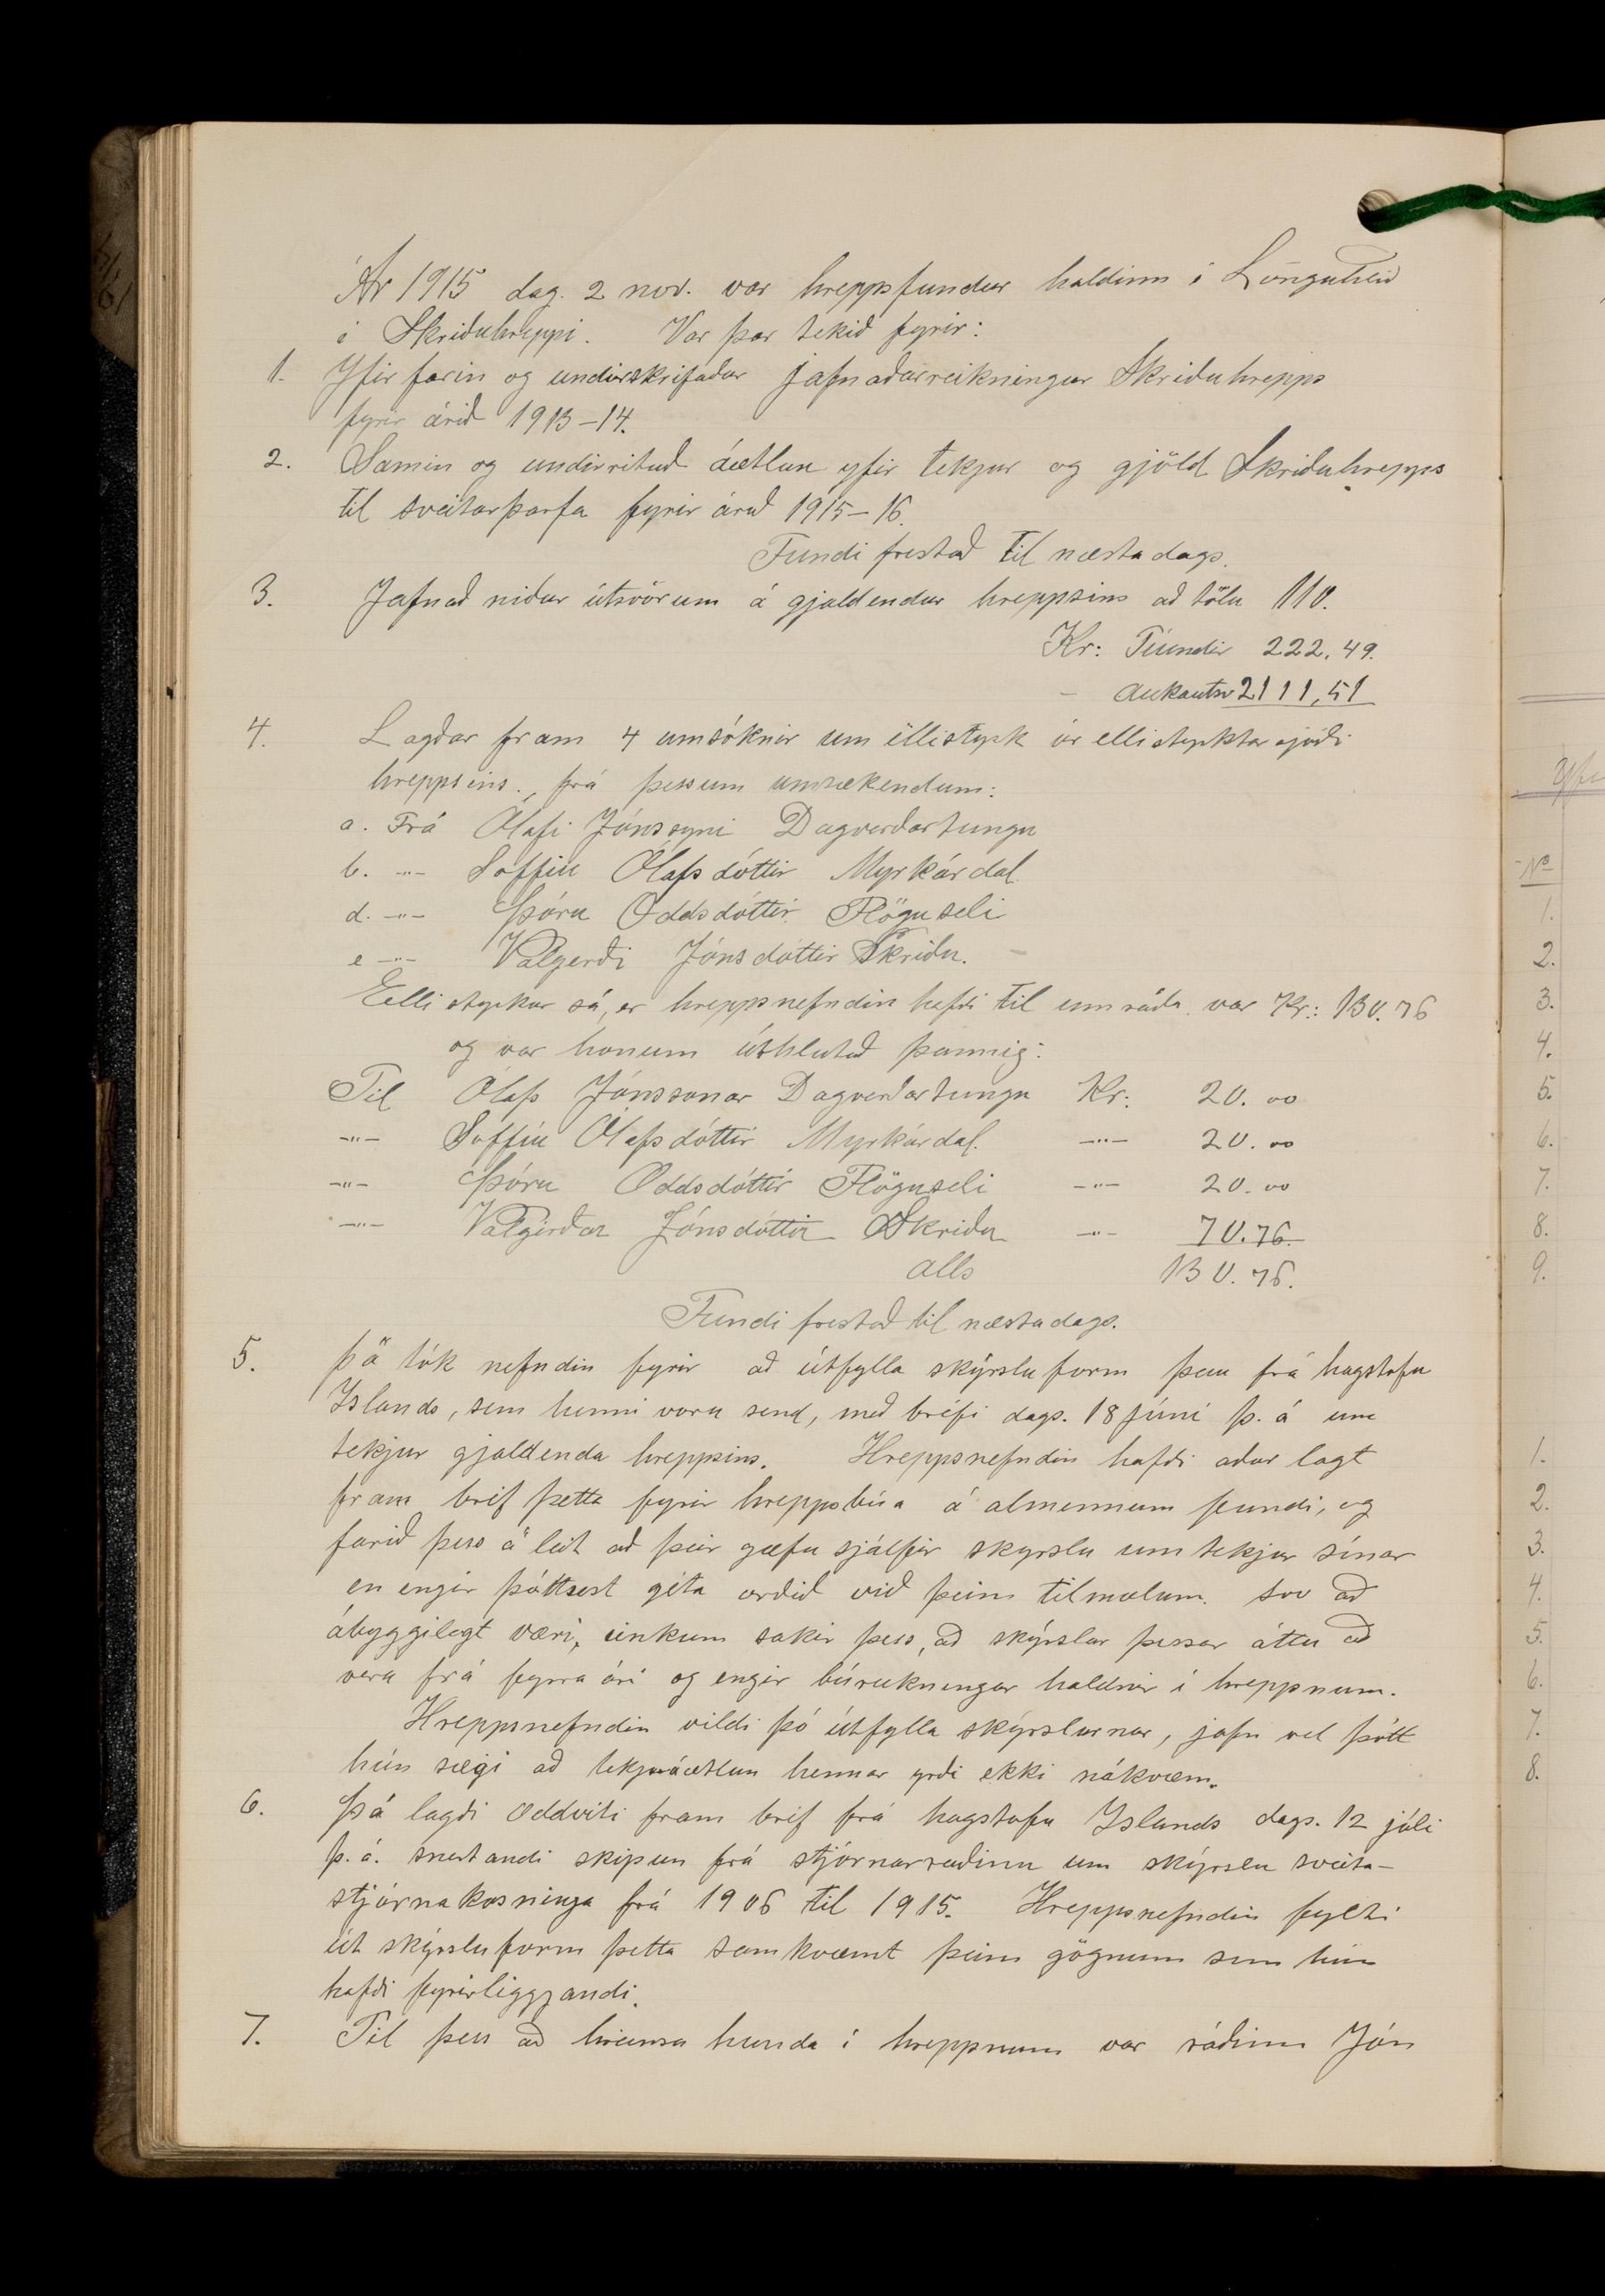 Ár 1915 dag. 2 nov. var hreppsfundur haldinn í Lönguhlíð
í Skriðuhreppi. Var þar tekið fyrir:
1. Yfirfarin og undirskrifaður jafnaðarreikningur Skriðuhrepps
fyrir árið 1913-14.
2. Samin og undirrituð áætlun yfir tekjur og gjöld Skriðuhrepps
til sveitarþarfa fyrir árið 1915-16.
Fundi frestað til næsta dags.
3. Jafnað niður útsvörum á gjaldendur hreppsins að tölu 110.
Kr: Tíundir 222.49.
- Aukautsv 2111,51
4. Lagðar fram 4 umsóknir um ellistyrk úr ellistyrktarsjóði
hreppsins, frá þessum umsækendum:
a. Frá Ólafi Jónssyni Dagverðartungu
b. -"- Soffíu Ólafsdóttir Myrkárdal.
d. -"- Þóru Oddsdóttir Flöguseli
e -"- Valgerði Jónsdóttir Skriðu. -
Ellistyrkur sá, er hreppsnefndin hafði til umráða var Kr: 130.76
og var honum úthlutað þannig:
Til Ólafs Jónssonar Dagverðartungu Kr: 20.00
-"- Soffíu Ólafsdóttir Myrkárdal. -"- 20.00
-"- Þóru Oddsdóttir Flöguseli -"- 20.00
-"- Valgerðar Jónsdóttir Skriðu -"- 70.76.
alls 130.76.
Fundi frestað til næsta dags.
5. Þá tók nefndin fyrir að útfylla skýrsluform þau frá hagstofu
Íslands, sem henni voru send, með bréfi dags. 18 júní þ. á um
tekjur gjaldenda hreppsins. Hreppsnefndin hafði aður lagt
fram bréf þetta fyrir hreppsbúa á almennum fundi, og
farið þess á leit að þeir gæfu sjálfir skyrslu um tekjur sínar
en engir þóttust géta orðið við þeim tilmælum. svo að
ábyggilegt væri, einkum sakir þess, að skýrslur þessar áttu að
vera frá fyrra ári og engir búreikningar haldnir í hreppnum.
Hreppsnefndin vildi þó útfylla skýrslurnar, jafn vel þótt
hún sægi að tekjuáætlun hennar yrði ekki nákvæm.
6. Þá lagði oddviti fram bréf frá hagstofu Íslands dags. 12 júli
þ.á. snertandi skipun frá stjórnarráðinu um skýrslu sveita-
stjórnakosninga frá 1906 til 1915. Hreppsnefndin fylti
út skýrsluform þetta samkvæmt þeim gögnum sem hún
hafði fyrirliggjandi.
7. Til þess að hreinsa hunda í hreppnum var ráðinn Jón
No
1.
2.
3.
4.
5.
6.
7.
8.
9.
1.
2.
3.
4.
5.
6.
7.
8.